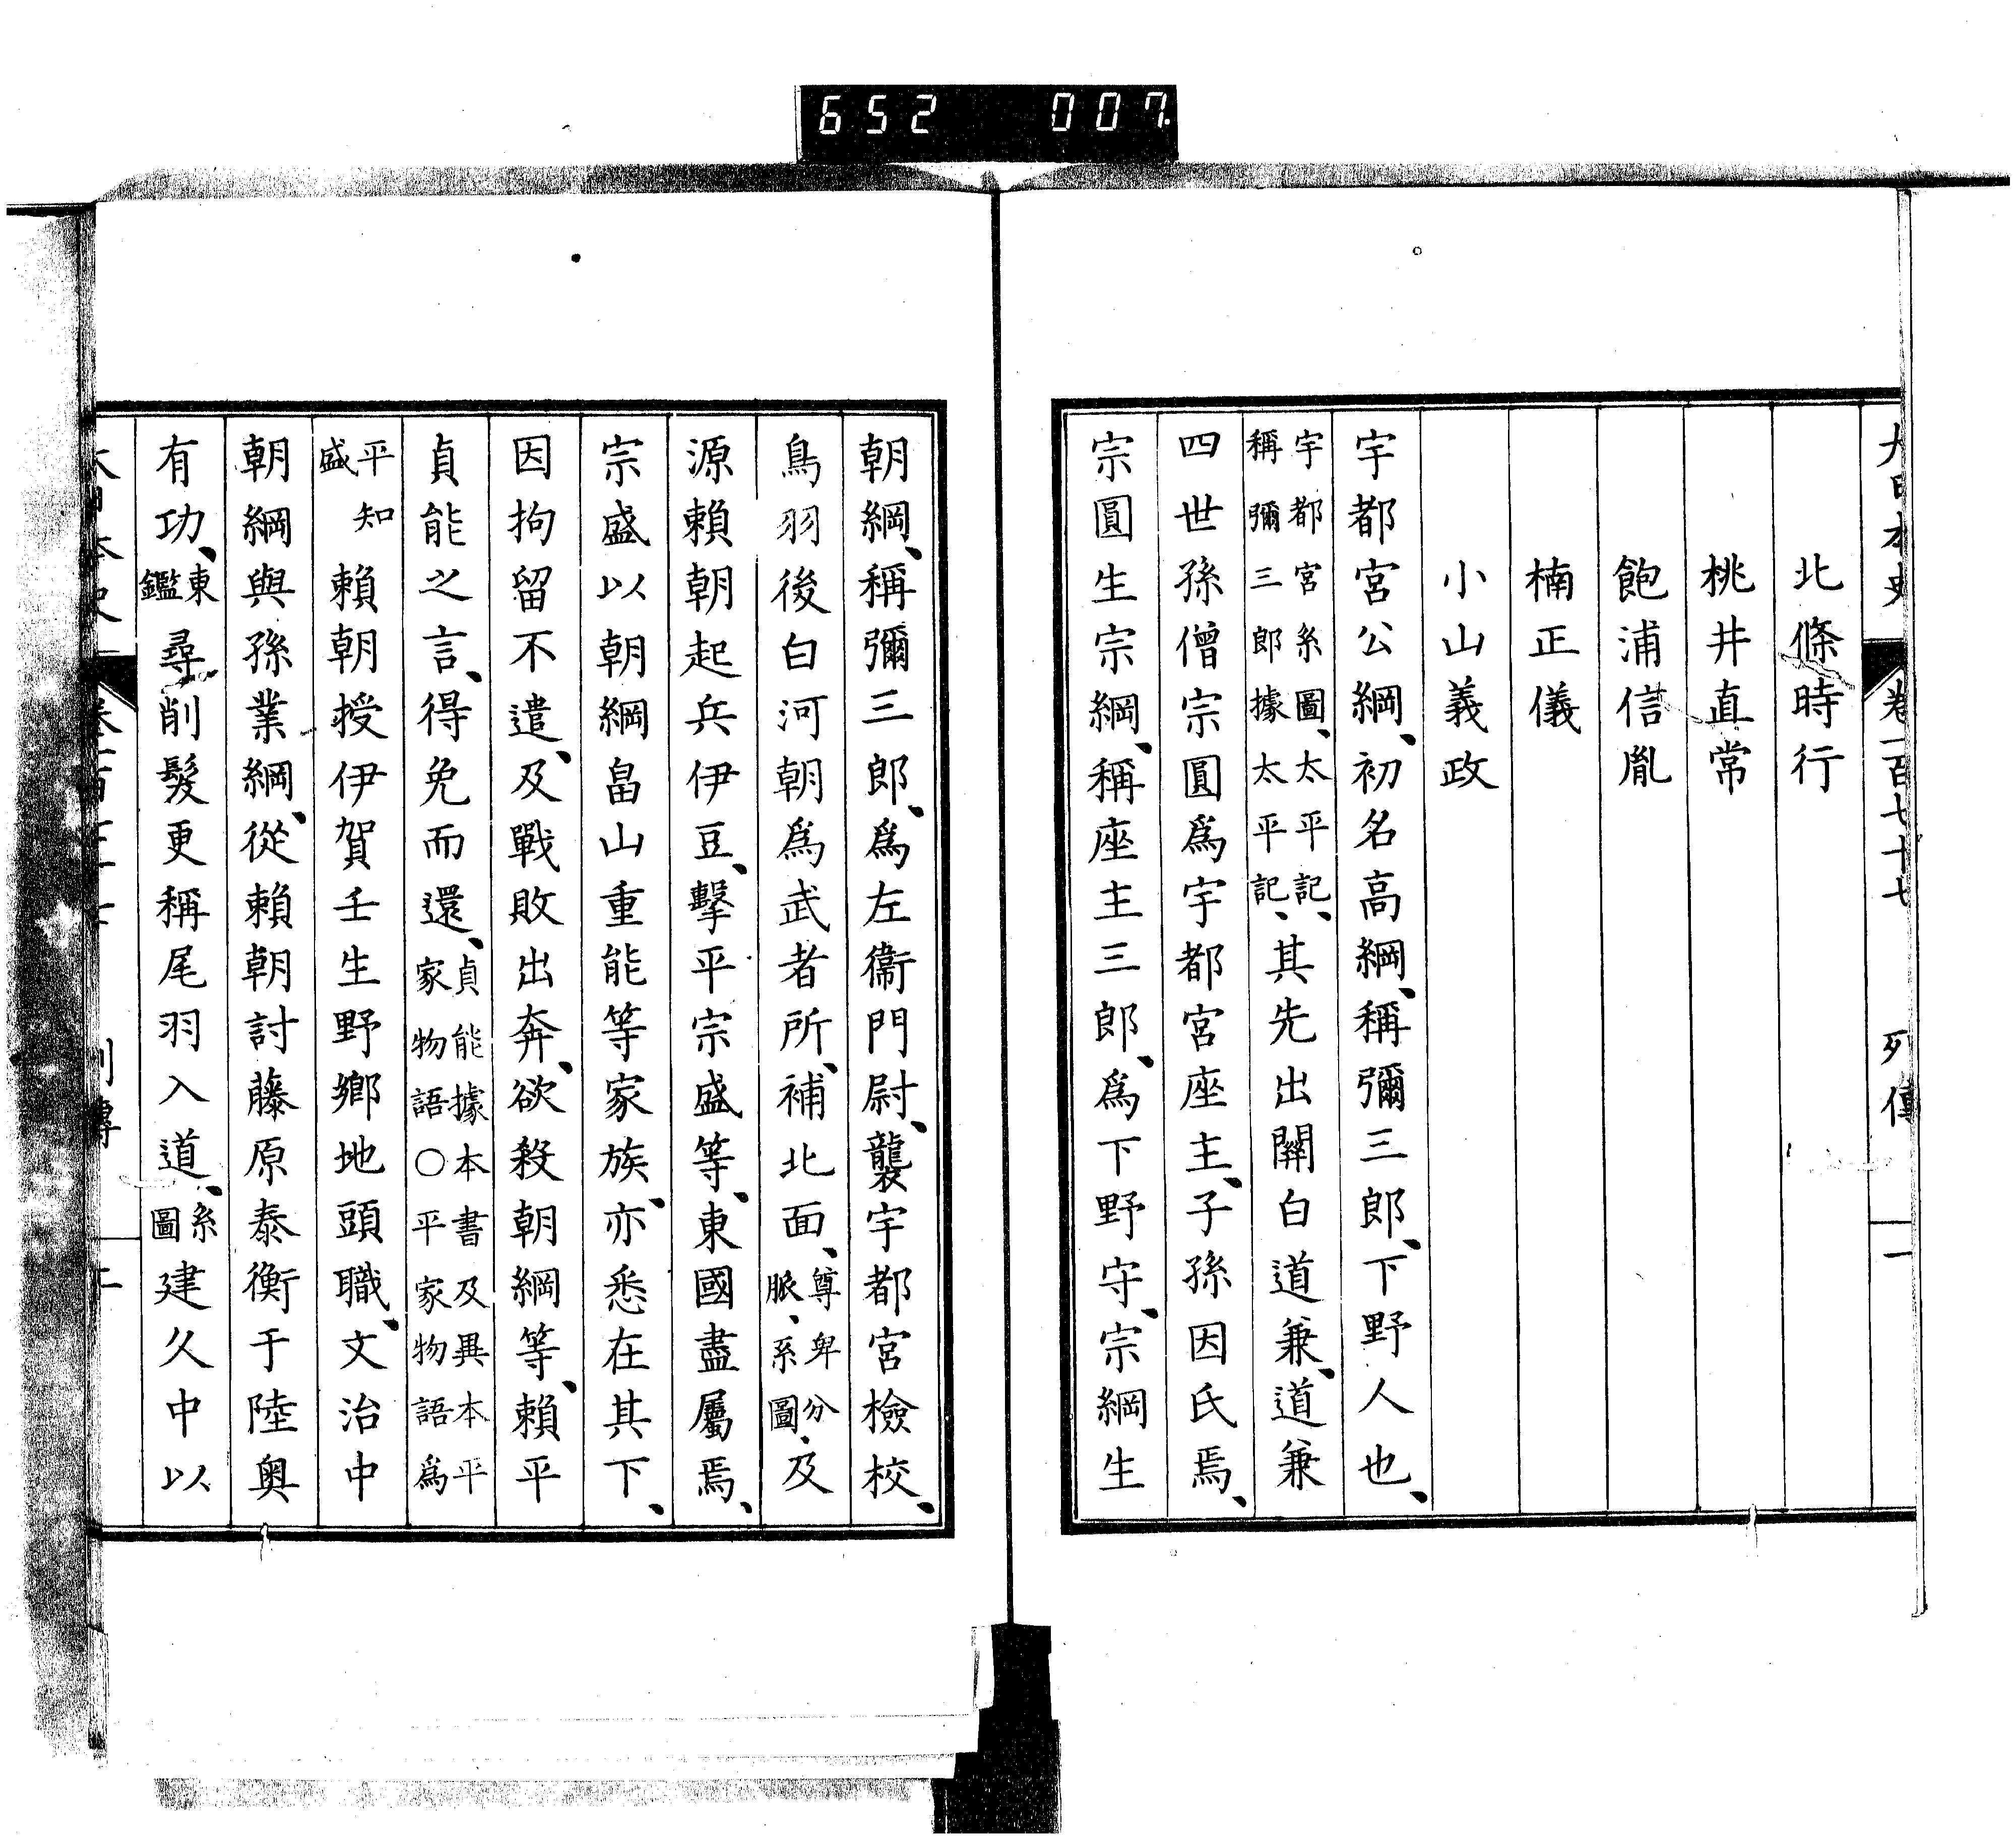 652 007
大日本史 卷一百七十七 列傳 一
北條時行
桃井直常
飽浦信胤
楠正儀
小山義政
宇都宮公綱、初名高綱、稱彌三郎、下野人也、
宇都宮系圖、太平記、
稱彌三郎據太平記、
其先出關白道兼、道兼
四世孫僧宗圓爲宇都宮座主、子孫因氏焉、
宗圓生宗綱、稱座主三郎、爲下野守、宗綱生
朝綱、稱彌三郎、爲左衞門尉、襲宇都宮檢校、
鳥羽後白河朝爲武者所、補北面、
尊卑分
脈、系圖、
及
源賴朝起兵伊豆、擊平宗盛等、東國盡屬焉、
宗盛以朝綱畠山重能等家族、亦悉在其下、
因拘留不遣、及戰敗出奔、欲殺朝綱等、賴平
貞能之言、得免而還、
貞能據本書及異本平
家物語〇平家物語爲
平知
盛
賴朝授伊賀壬生野鄉地頭職、文治中
朝綱與孫業綱、從賴朝討藤原泰衡于陸奧
有功、
東
鑑
尋削髮更稱尾羽入道、
系
圖
建久中以